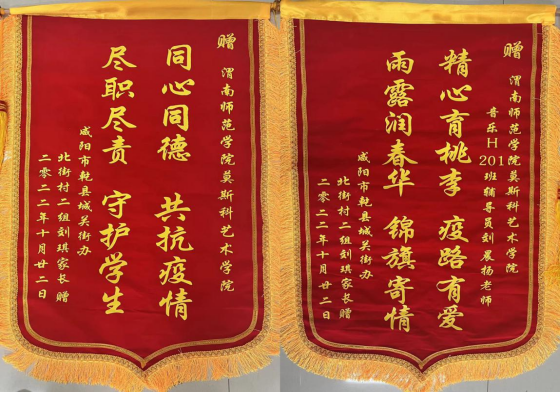 赠 渭南师范学院莫斯科艺术学院
同心同德 共抗疫情
尽职尽责 守护学生
咸阳市乾县城关街办
北街村二组刘琪家长赠
二零二二年十月廿二日
赠 渭南师范学院莫斯科艺术学院
音乐H201班辅导员刘展扬老师
精心育桃李 疫路有爱
雨露润春华 锦旗寄情
咸阳市乾县城关街办
北街村二组刘琪家长赠
二零二二年十月廿二日